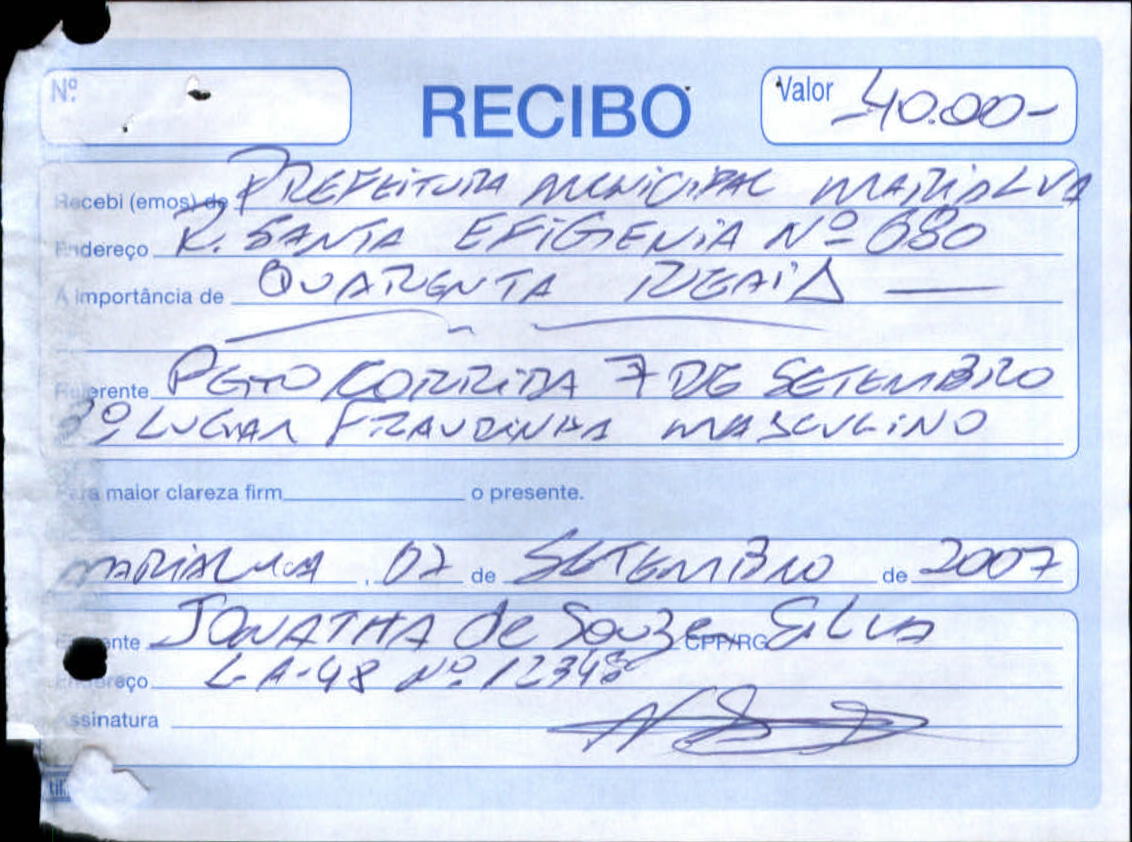 Nº
RECIBO
Valor -40.00-
Recebi (emos) de PREFEITURA MUNICIPAL MARIALVA
Endereço R. SANTA EFIGENIA Nº 680
A Importância de QUARENTA REAIS
Referente PGTO CORRIDA 7 DE SETEMBRO
3º LUGAR MASCULINO
Para maior clareza firm o presente.
MARIALVA, 07 de SETEMBRO de 2007
Emitente JONATHA de Souza SiLVA CPF/RG
Endereço L-A-48 Nº 12348
Assinatura